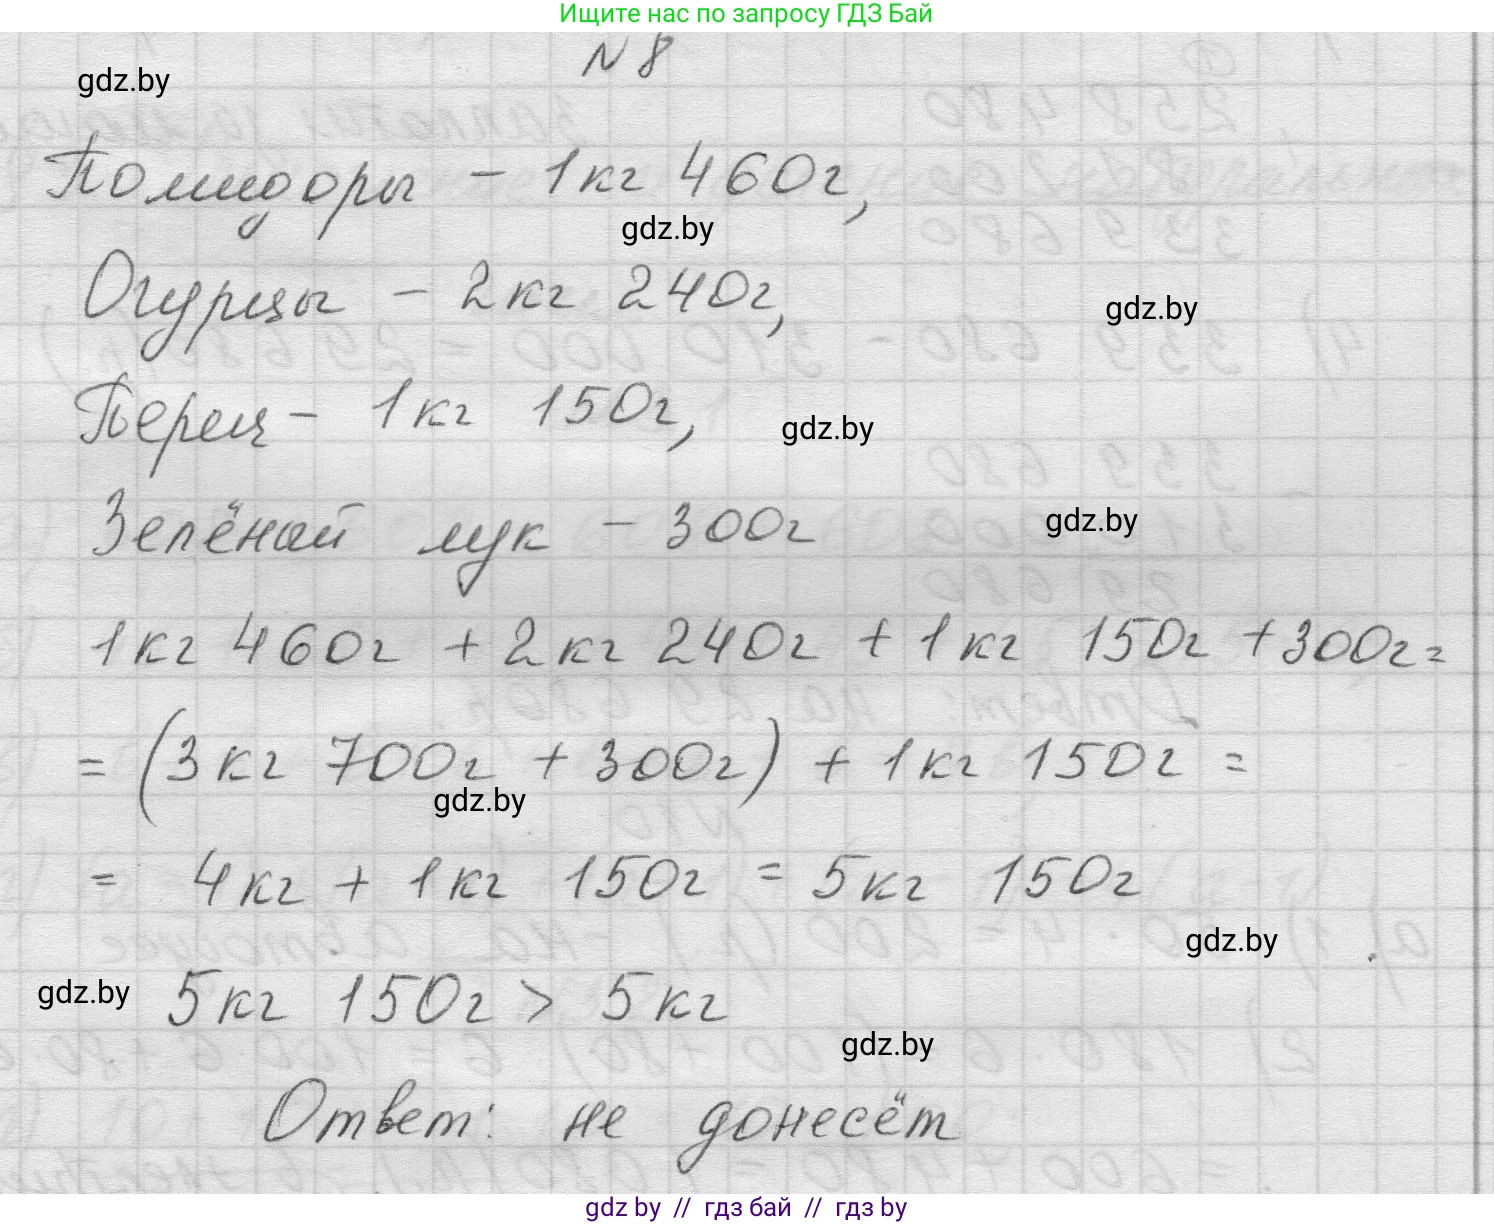 Ищите нас по запросу ГДЗ Бай
N 8
gdz.by
Помидоры – 1кг 460г,
gdz.by
Огурцы – 2кг 240г,
gdz.by
Перец – 1кг 150г,
gdz.by
Зелёный лук – 300г
gdz.by
1кг 460г + 2кг 240г + 1кг 150г + 300г =
= (3кг 700г + 300г) + 1кг 150г =
gdz.by
= 4кг + 1кг 150г = 5кг 150г
gdz.by
gdz.by
5кг 150г > 5кг
gdz.by
Ответ: не донесёт
gdz.by // гдз бай // гдз by